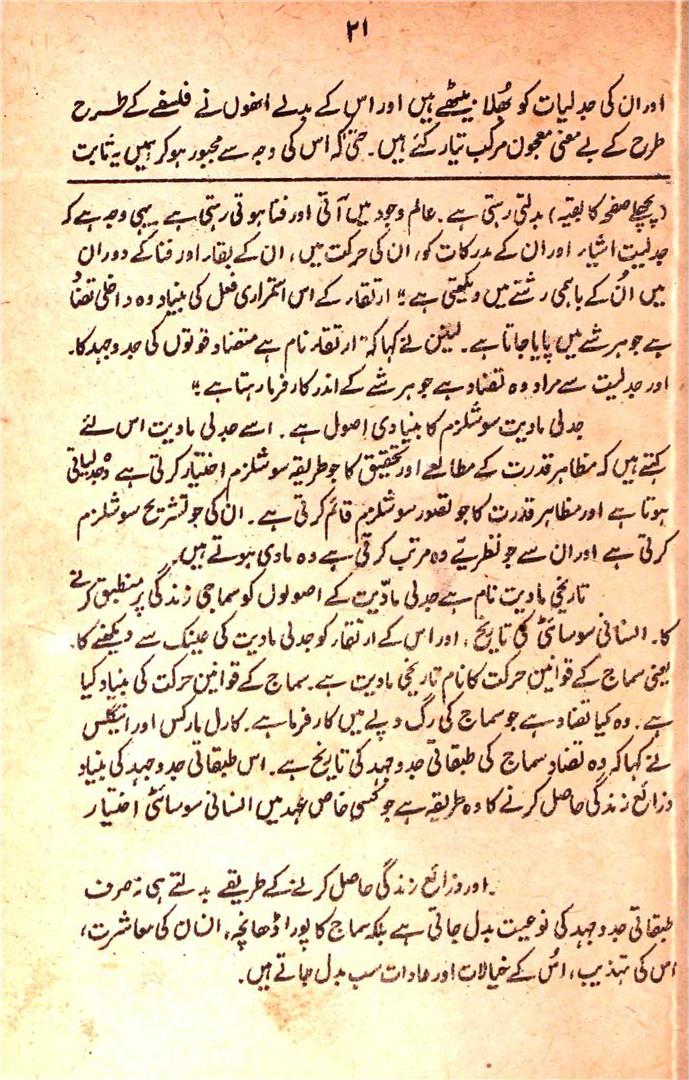 ۲۱
اور ان کی جدلیات کو بھُلا بیٹھے ہیں اور اس کے بدلے انھوں نے فلسفے کے طرح
طرح کے بے معنی معجون مرکب تیار کئے ہیں۔ حتیٰ کہ اس کی وجہ سے مجبور ہو کر ہمیں یہ ثابت
(پچھلے صفحہ کا بقیہ) بدلتی رہتی ہے۔ عالم وجود میں آتی اور فنا ہوتی رہتی ہے۔ یہی وجہ ہے کہ
جدلیت اشیاء اور ان کے مدرکات کو، ان کی حرکت میں، ان کے بقاء اور فنا کے دوران
میں اُن کے باہمی رشتے میں دیکھتی ہے" ارتقاء کے اس استمراری فعل کی بنیاد وہ داخلی تضاد
ہے جو ہر شے میں پایا جاتا ہے۔ لینن نے کہا کہ "ارتقاء نام ہے متضاد قوتوں کی جدوجہد کا۔
اور جدلیت سے مراد وہ تضاد ہے جو ہر شے کے اندر کارفرما رہتا ہے"
جدلی مادیت سوشلزم کا بنیادی اصول ہے۔ اسے جدلی مادیت اس لئے
کہتے ہیں کہ مظاہر قدرت کے مطالعے اور تحقیق کا جو طریقہ سوشلزم اختیار کرتی ہے وہ جدلیاتی
ہوتا ہے اور مظاہر قدرت کا جو تصور سوشلزم قائم کرتی ہے۔ ان کی جو تشریح سوشلزم
کرتی ہے اور ان سے جو نظریے وہ مرتب کرتی ہے وہ مادی ہوتے ہیں۔
تاریخی مادیت نام ہے جدلی مادّیت کے اصولوں کو سماجی زندگی پر منطبق کرنے
کا۔ انسانی سوسائٹی کی تاریخ، اور اس کے ارتقاء کو جدلی مادیت کی عینک سے دیکھنے کا۔
یعنی سماج کے قوانین حرکت کا نام تاریخی مادیت ہے۔ سماج کے قوانین حرکت کی بنیاد کیا
ہے۔ وہ کیا تضاد ہے جو سماج کی رگ و پے میں کارفرما ہے۔ کارل مارکس اور اینگلس
نے کہا کہ وہ تضاد سماج کی طبقاتی جدوجہد کی تاریخ ہے۔ اس طبقاتی جدوجہد کی بنیاد
ذرائع زندگی حاصل کرنے کا وہ طریقہ ہے جو کسی خاص عہد میں انسانی سوسائٹی اختیار
۔اور ذرائع زندگی حاصل کرنے کے طریقے بدلتے ہی نہ صرف
طبقاتی جدوجہد کی نوعیت بدل جاتی ہے بلکہ سماج کا پورا ڈھانچہ، انسان کی معاشرت،
اس کی تہذیب، اُس کے خیالات اور عادات سب بدل جاتے ہیں۔